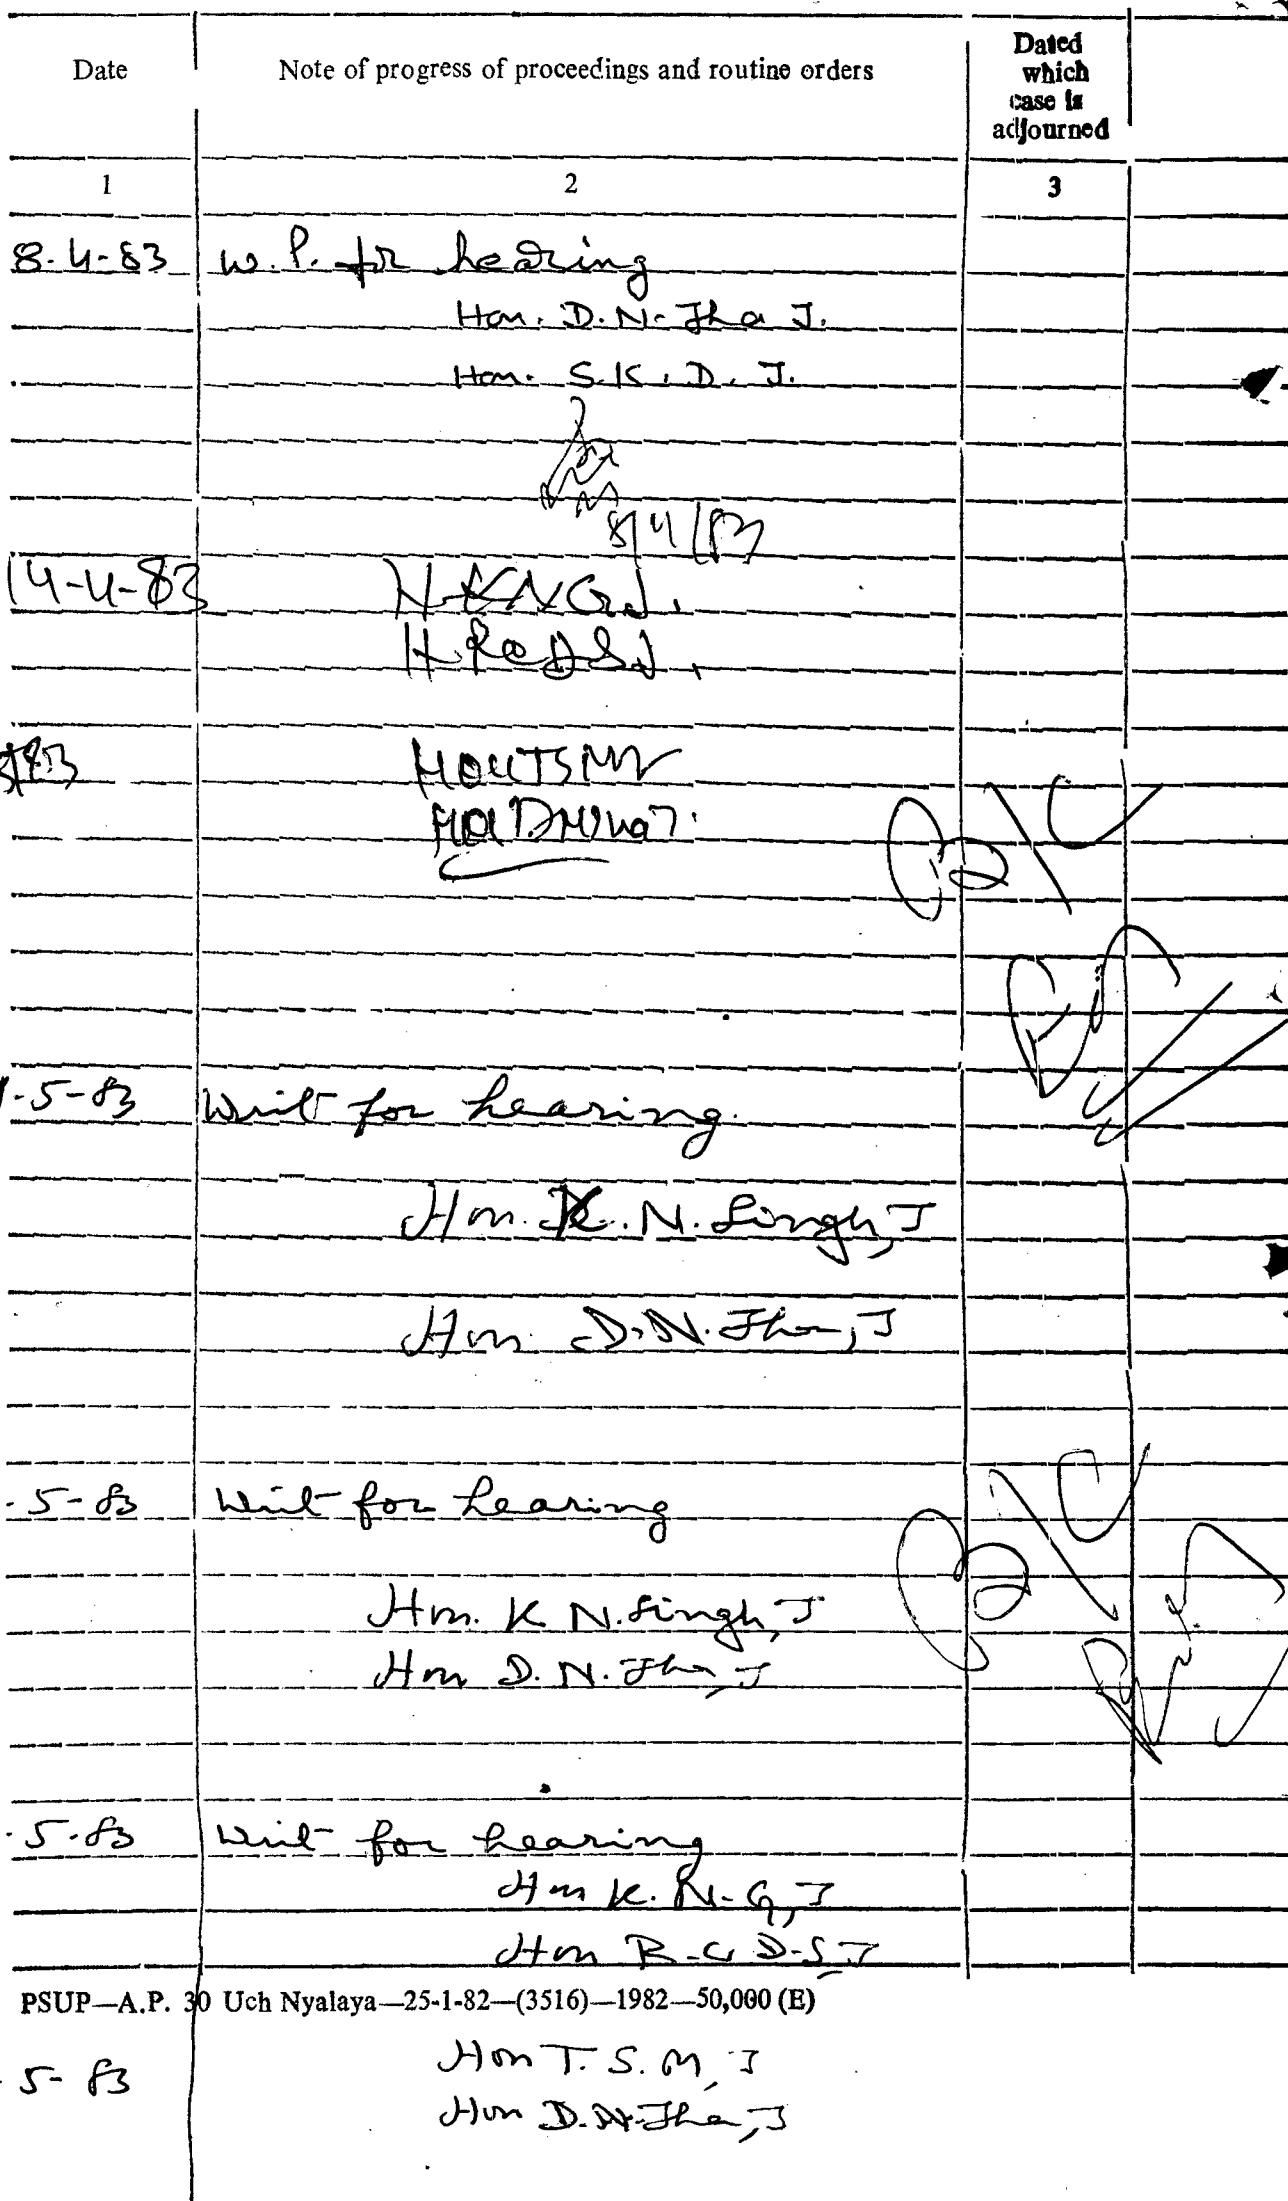 Date Note of progress of proceedings and routine orders Dated which case is adjourned
1 2 3
8-4-83 W.P. for hearing
Hon. D.N. Jha J.
Hon. S.K.D. J.
8/4/83
14-4-83 H.K.N.G.J.
/83
1-5-83 Writ for hearing.
Hon. K. N. Singh, J
Hon D.N. Jha, J
-5-83 Writ for hearing
Hon. K N. Singh, J
Hon D. N. Jha, J
-5-83 Writ for hearing
Hon K. N. G, J
Hon R. C. D. S, J
PSUP—A.P. 30 Uch Nyalaya—25-1-82—(3516)—1982—50,000 (E)
5-83 Hon T. S. M, J
Hon D. N. Jha, J